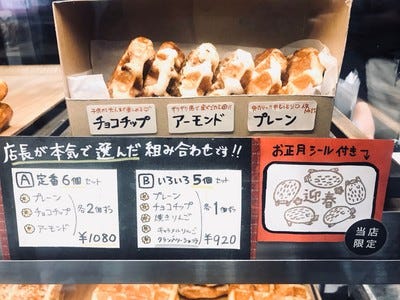 チョコチップ
アーモンド
プレーン
店長が本気で選んだ組み合わせです!!
A 定番6個セット
プレーン
チョコチップ
アーモンド
各2個ずつ
¥1080
B いろいろ5個セット
プレーン
チョコチップ
焼きりんご
キャラメルりんご
各1個ずつ
¥920
お正月シール付き
迎春
当店
限定